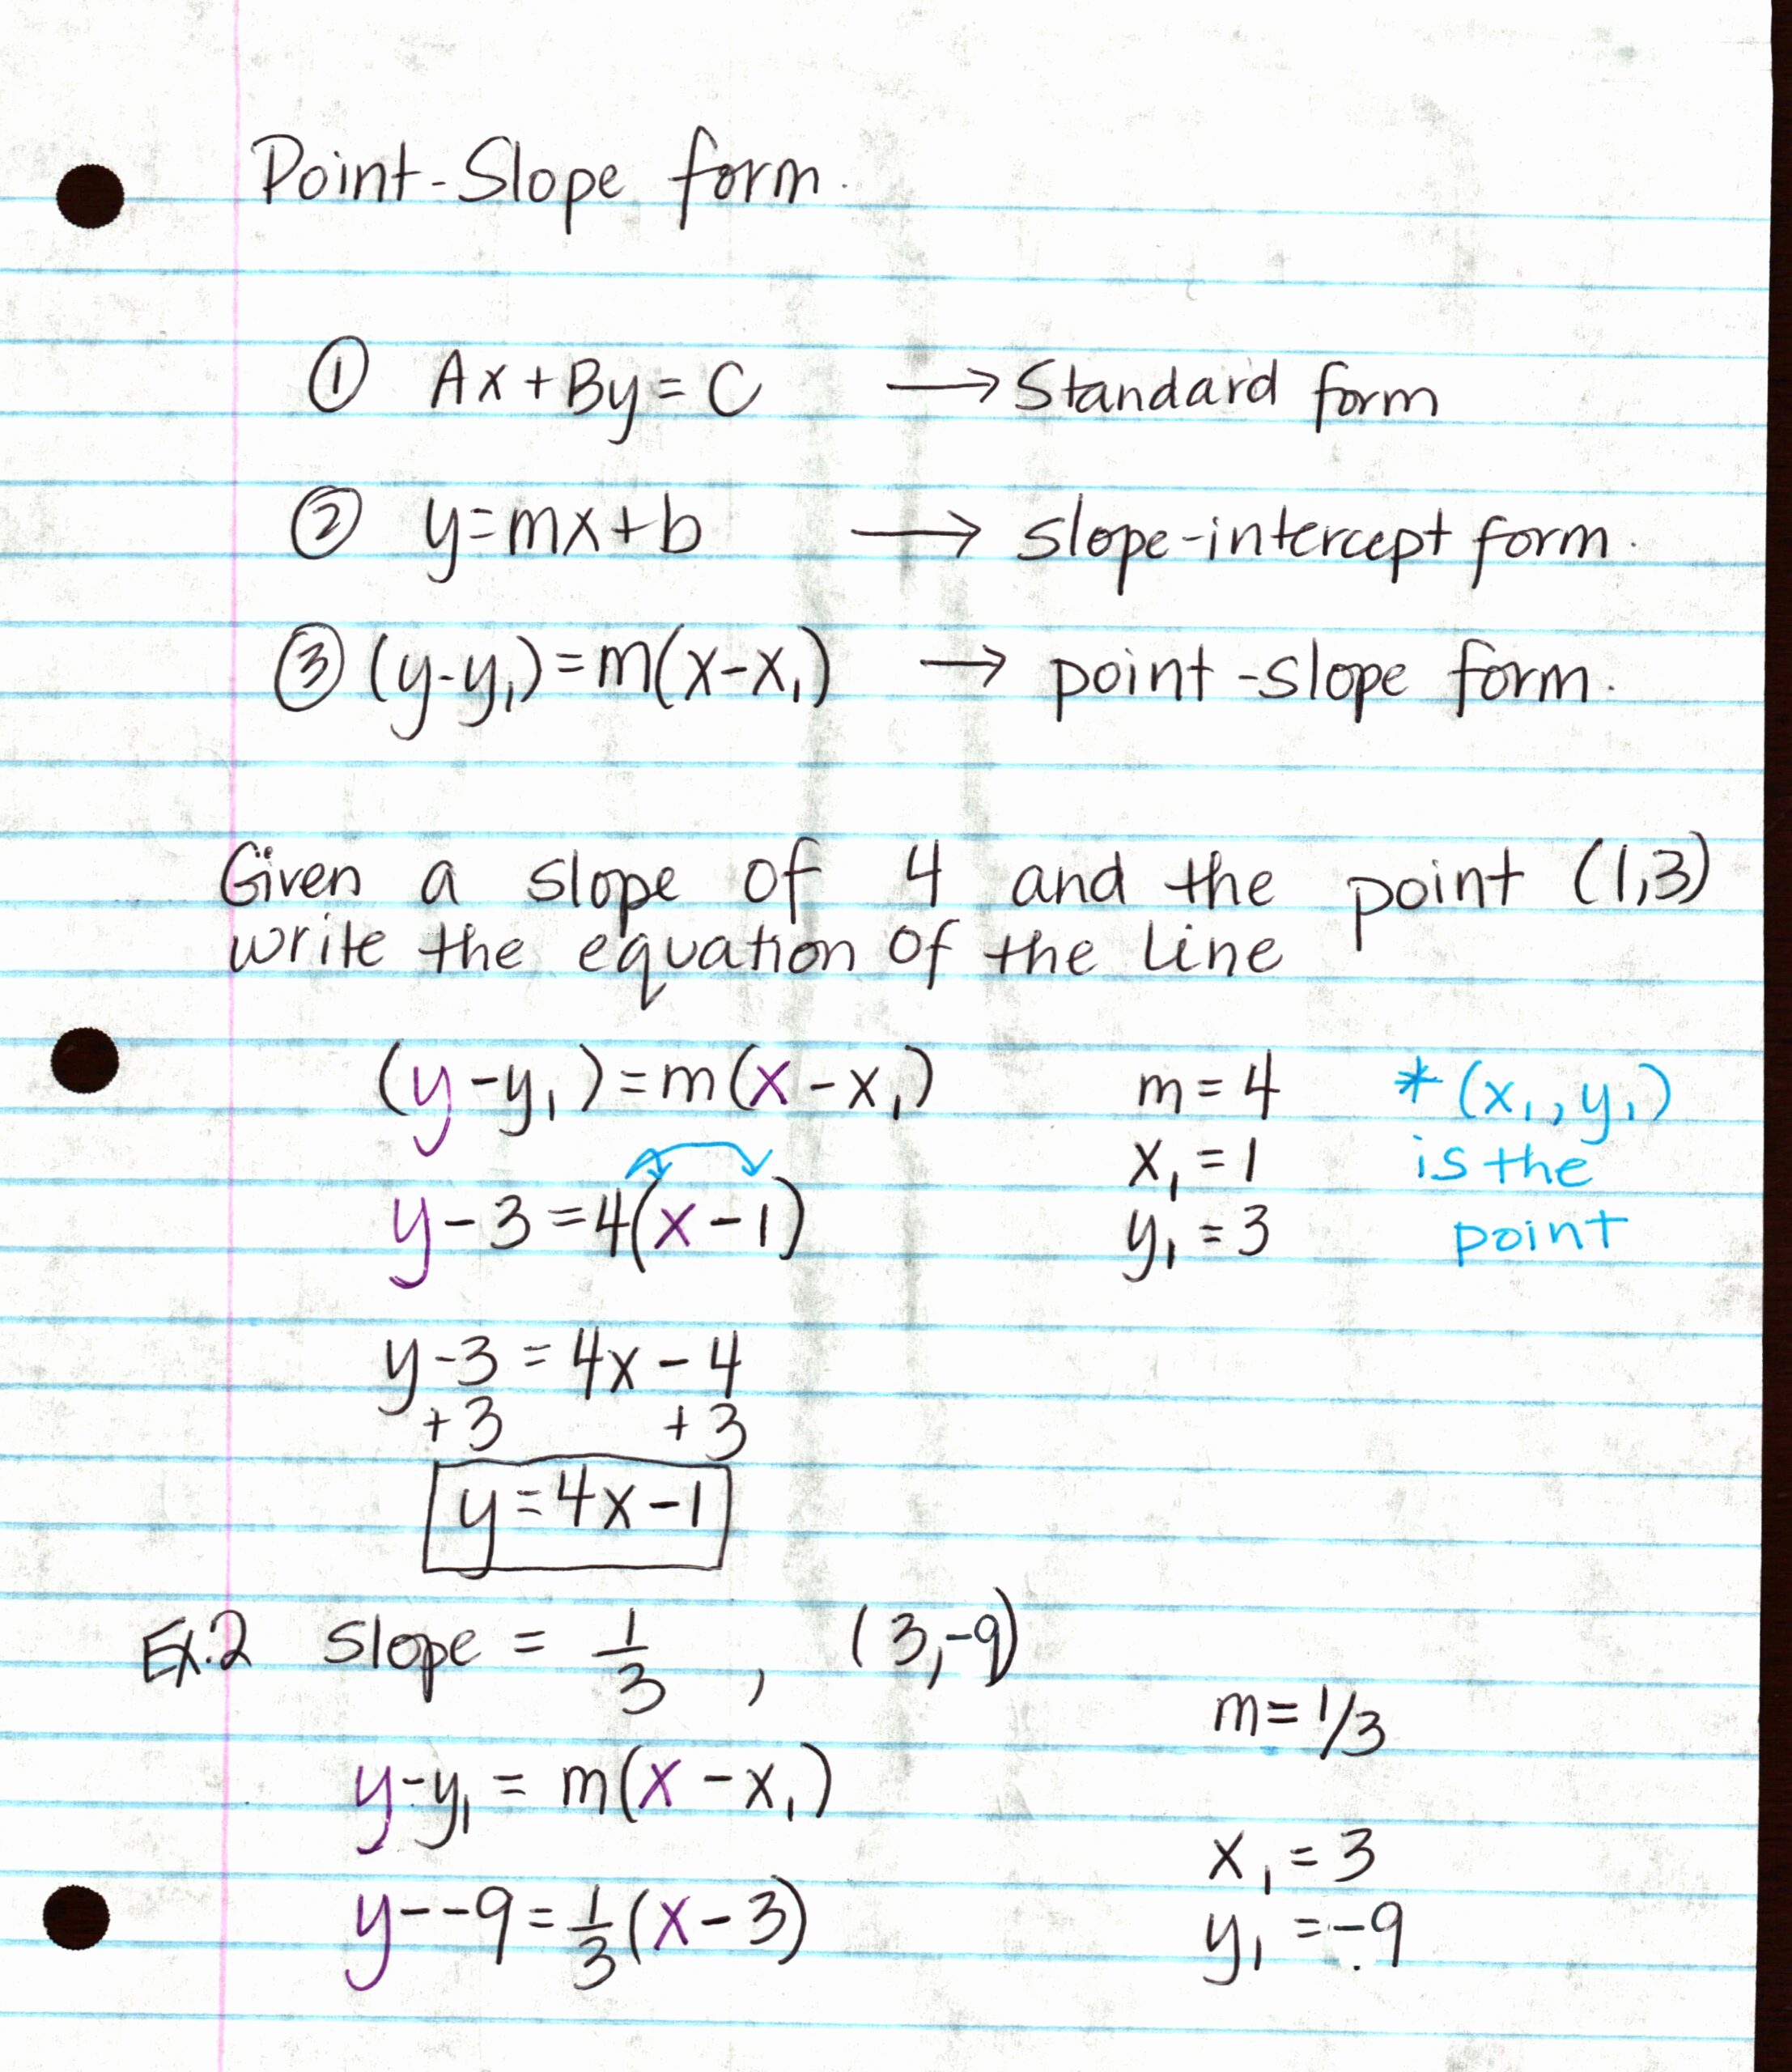 Point-Slope form.
① Ax+By=C → Standard form
② y=mx+b → slope-intercept form.
③ (y-y₁)=m(x-x₁) → point-slope form.
Given a slope of 4 and the point (1,3)
write the equation of the line
(y-y₁)=m(x-x₁) m=4 *(x₁,y₁)
x₁=1 is the
y-3=4(x-1) y₁=3 point
y-3=4x-4
+3 +3
y=4x-1
Ex.2 slope = 1/3, (3,-9)
m=1/3
y-y₁ = m(x-x₁)
x₁=3
y--9=1/3(x-3) y₁=-9